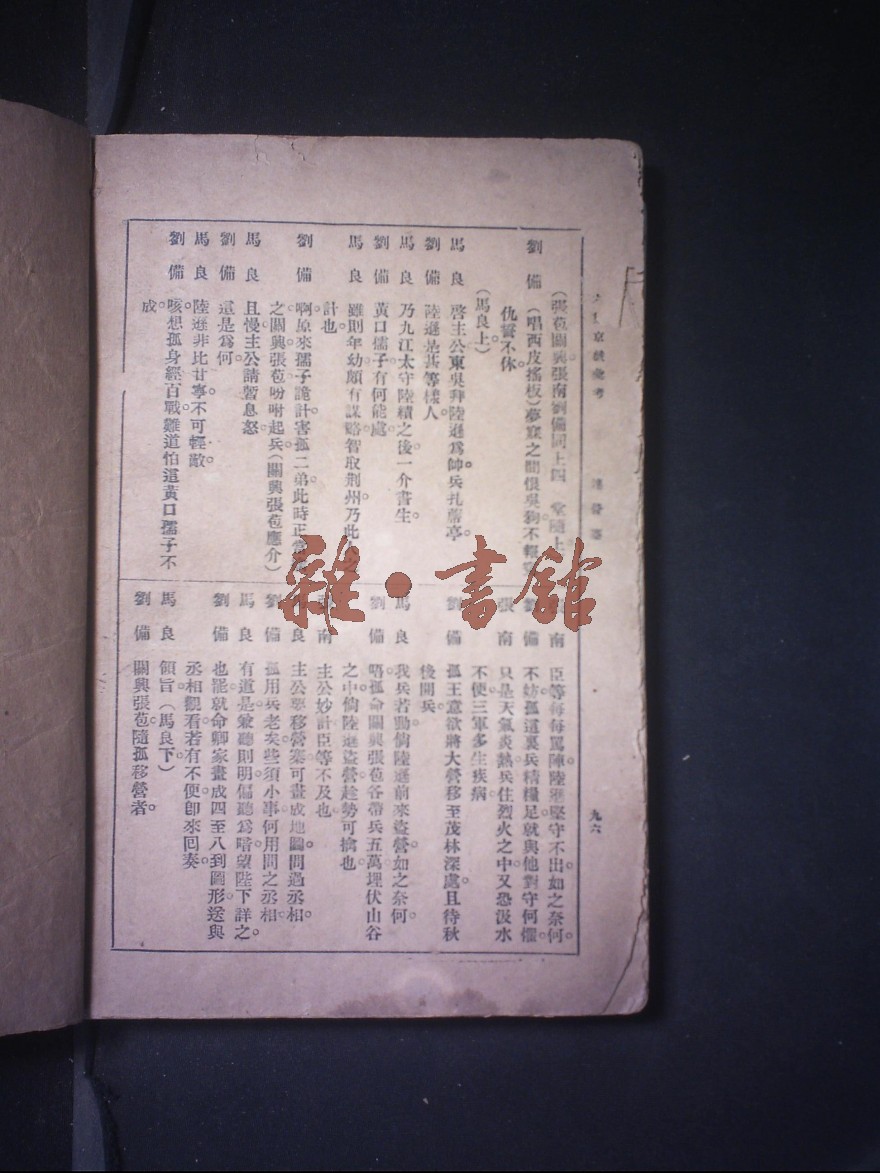 京戲彙考
連營寨
九六
（張苞關興張南劉備同上四堂隨上）
劉備（唱西皮搖板）夢寐之間恨吳狗不報
仇誓不休。
（馬良上）
馬良 啓主公東吳拜陸遜爲帥兵扎蘆亭。
劉備 陸遜是甚等樣人。
馬良 乃九江太守陸績之後一介書生。
劉備 黃口孺子有何能處。
馬良 雖則年幼頗有謀略智取荆州。乃此人之
計也。
劉備 啊。原來孺子詭計害孤二弟。此時正當
之關興張苞吩咐起兵（關興張苞應介）
馬良 且慢。主公請暫息怒。
劉備 這是爲何。
馬良 陸遜非比甘寧。不可輕敵。
劉備 咳。想孤身經百戰。難道怕這黃口孺子不
成。
張南 臣等每每罵陣。陸遜堅守不出。如之奈何。
劉備 不妨。孤這裏兵精糧足。就與他對守何懼。
張南 只是天氣炎熱。兵住烈火之中。又恐汲水
不便。三軍多生疾病。
劉備 孤王意欲將大營移至茂林深處。且待秋
後開兵。
馬良 我兵若動。倘陸遜前來盜營。如之奈何。
劉備 唔。孤命關興張苞各帶兵五萬。埋伏山谷
之中。倘陸遜盜營。趁勢可擒也。
張南 主公妙計。臣等不及也。
馬良 主公要移營寨。可畫成地圖。問過丞相。
劉備 孤用兵老矣。些須小事。何用問之丞相。
馬良 有道是兼聽則明。偏聽爲暗。望陛下詳之。
劉備 也罷。就命卿家畫成四至八到圖形。送與
丞相觀看。若有不便。卽來回奏。
馬良 領旨。（馬良下）
劉備 關興張苞。隨孤移營者。
雜·書館